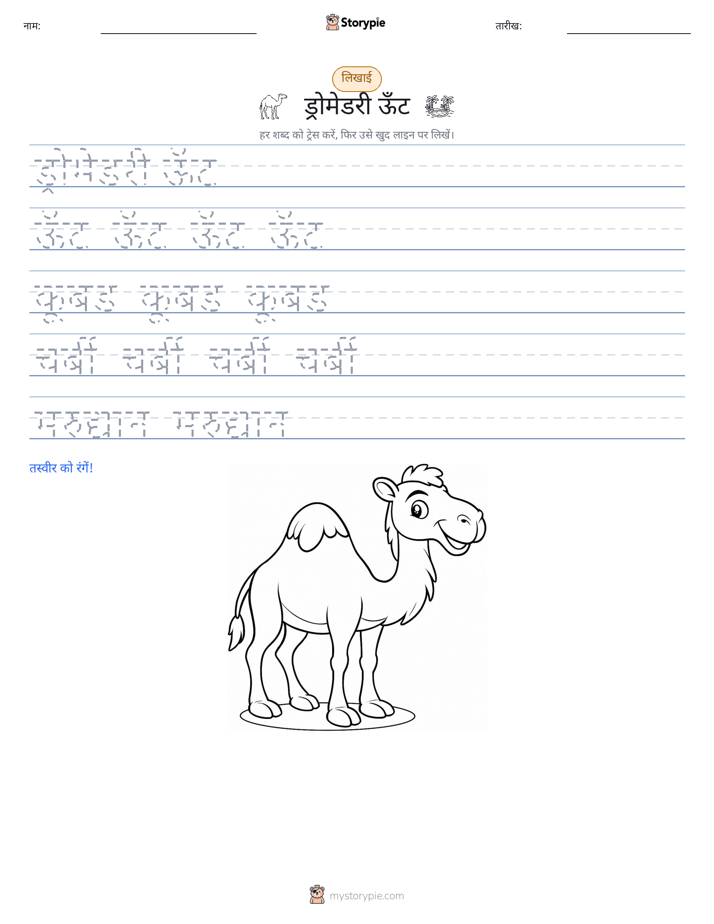 नाम:
Storypie
तारीख:
लिखाई
ड्रोमेडरी ऊँट
हर शब्द को ट्रेस करें, फिर उसे खुद लाइन पर लिखें।
ड्रोमेडरी ऊँट
ऊँट ऊँट ऊँट ऊँट
कूबड़ कूबड़ कूबड़
चर्बी चर्बी चर्बी चर्बी
मरुद्यान मरुद्यान
तस्वीर को रंगें!
mystorypie.com